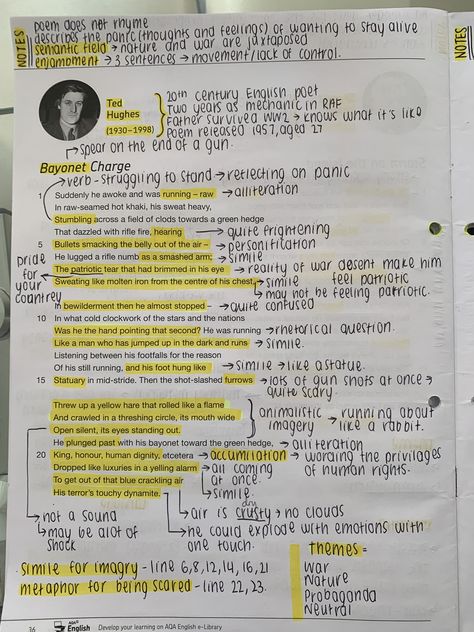 NOTES
poem does not rhyme
describes the panic (thoughts and feelings) of wanting to stay alive
semantic field → nature and war are juxtaposed
enjambment → 3 sentences → movement/lack of control.
NOTES
Ted
Hughes
(1930–1998)
20th century English poet
Two years as mechanic in RAF
Father survived WW2 → knows what it's like
Poem released 1957, aged 27
→ spear on the end of a gun.
Bayonet Charge
→ verb - struggling to stand → reflecting on panic
1 Suddenly he awoke and was running – raw → alliteration
In raw-seamed hot khaki, his sweat heavy,
Stumbling across a field of clods towards a green hedge
That dazzled with rifle fire, hearing → quite frightening
5 Bullets smacking the belly out of the air – → personification
He lugged a rifle numb as a smashed arm; → simile
The patriotic tear that had brimmed in his eye → reality of war desent make him feel patriotic
Sweating like molten iron from the centre of his chest, → simile
may not be feeling patriotic.
pride for your countrey
In bewilderment then he almost stopped – → quite confused
10 In what cold clockwork of the stars and the nations
Was he the hand pointing that second? He was running → rhetorical question.
Like a man who has jumped up in the dark and runs → Simile.
Listening between his footfalls for the reason
Of his still running, and his foot hung like → simile → like a statue.
15 Statuary in mid-stride. Then the shot-slashed furrows → lots of gun shots at once → quite scary.
Threw up a yellow hare that rolled like a flame
And crawled in a threshing circle, its mouth wide
Open silent, its eyes standing out.
animalistic imagery → running about like a rabbit.
He plunged past with his bayonet toward the green hedge, → alliteration
20 King, honour, human dignity, etcetera → accumilation → wording the privilages of human rights.
Dropped like luxuries in a yelling alarm → all coming at once.
To get out of that blue crackling air → simile.
His terror's touchy dynamite.
→ not a sound
→ may be alot of shock
→ air is crusty dry → no clouds
→ he could explode with emotions with one touch.
simile for imagry - line 6,8,12,14,16,21
metaphor for being scared - line 22, 23.
Themes =
War
Nature
Propaganda
Neutral
36 AQA English Develop your learning on AQA English e-Library